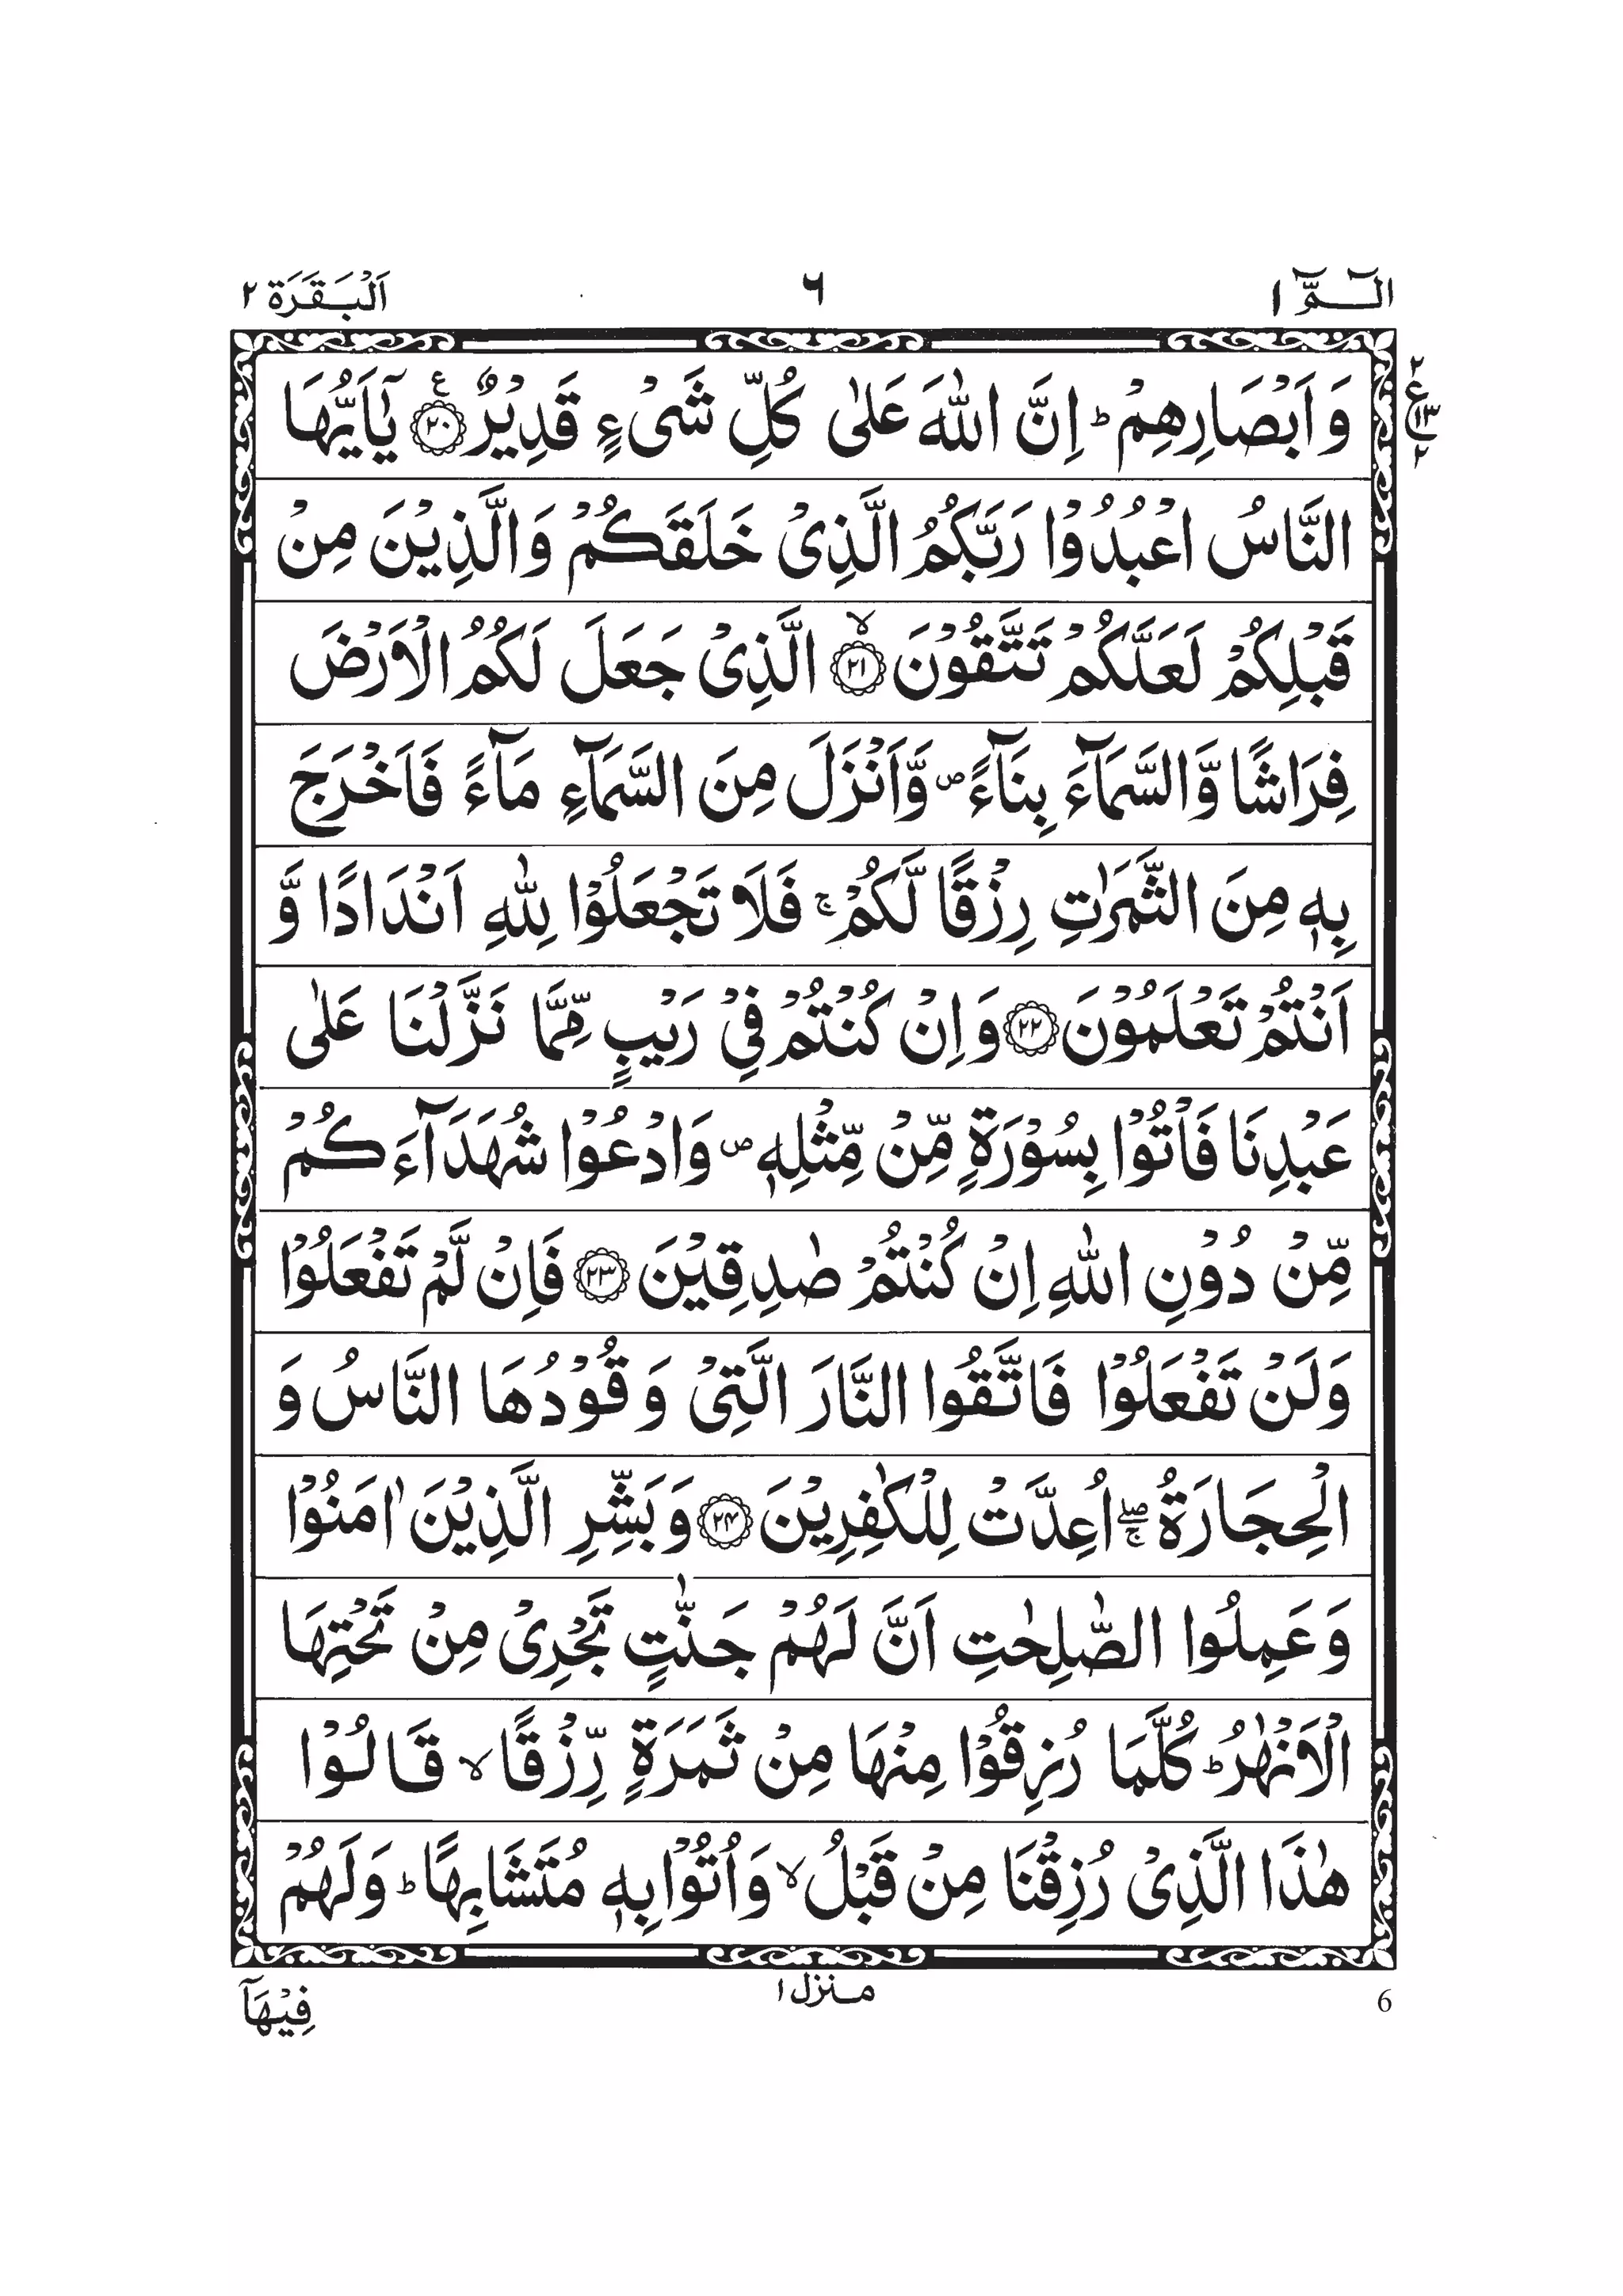 الٓـمّٓ ١ ٦ اَلْبَقَرَة ٢
وَاَبْصَارِهِمْ ؕ اِنَّ اللّٰهَ عَلٰى كُلِّ شَىْءٍ قَدِيْرٌ ﴿۲۰﴾ ع يٰٓاَيُّهَا
٢ ع ١٣ ٢
النَّاسُ اعْبُدُوْا رَبَّكُمُ الَّذِىْ خَلَقَكُمْ وَالَّذِيْنَ مِنْ
قَبْلِكُمْ لَعَلَّكُمْ تَتَّقُوْنَ ﴿۲۱﴾ ۙ الَّذِىْ جَعَلَ لَكُمُ الْاَرْضَ
فِرَاشًا وَّالسَّمَآءَ بِنَآءً ص وَّاَنْزَلَ مِنَ السَّمَآءِ مَآءً فَاَخْرَجَ
بِهٖ مِنَ الثَّمَرٰتِ رِزْقًا لَّكُمْ ۚ فَلَا تَجْعَلُوْا لِلّٰهِ اَنْدَادًا وَّ
اَنْتُمْ تَعْلَمُوْنَ ﴿۲۲﴾ وَاِنْ كُنْتُمْ فِىْ رَيْبٍ مِّمَّا نَزَّلْنَا عَلٰى
عَبْدِنَا فَاْتُوْا بِسُوْرَةٍ مِّنْ مِّثْلِهٖ ص وَادْعُوْا شُهَدَآءَكُمْ
مِّنْ دُوْنِ اللّٰهِ اِنْ كُنْتُمْ صٰدِقِيْنَ ﴿۲۳﴾ فَاِنْ لَّمْ تَفْعَلُوْا
وَلَنْ تَفْعَلُوْا فَاتَّقُوا النَّارَ الَّتِىْ وَقُوْدُهَا النَّاسُ وَ
الْحِجَارَةُ ۖۚ اُعِدَّتْ لِلْكٰفِرِيْنَ ﴿۲۴﴾ وَبَشِّرِ الَّذِيْنَ اٰمَنُوْا
وَعَمِلُوا الصّٰلِحٰتِ اَنَّ لَهُمْ جَنّٰتٍ تَجْرِىْ مِنْ تَحْتِهَا
الْاَنْهٰرُ ؕ كُلَّمَا رُزِقُوْا مِنْهَا مِنْ ثَمَرَةٍ رِّزْقًا ۙ قَالُوْا
هٰذَا الَّذِىْ رُزِقْنَا مِنْ قَبْلُ ۙ وَاُتُوْا بِهٖ مُتَشَابِهًا ؕ وَلَهُمْ
6 منزل ١ فِيْهَآ